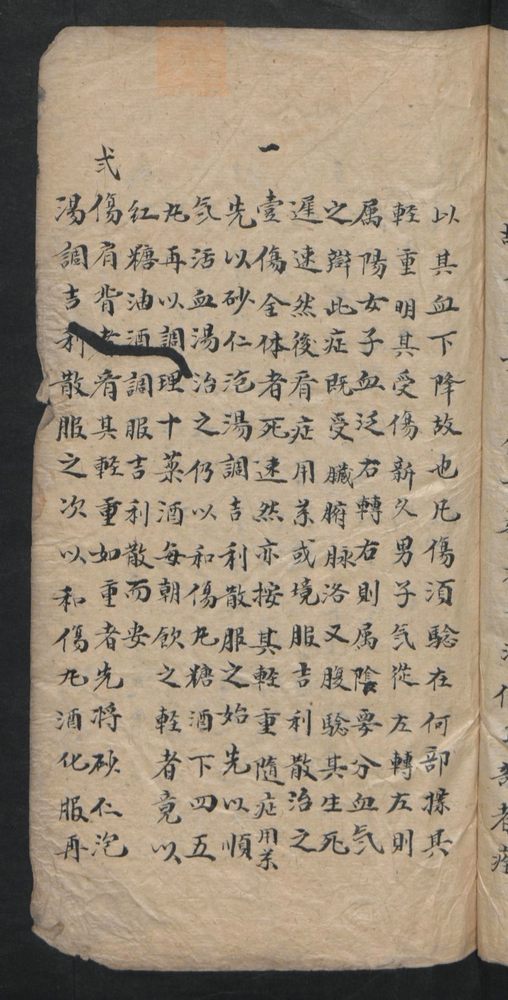 以其血下降故也凡傷須驗在何部據其
輕重明其受傷新久男子気從左轉左則
属陽女子血泛右轉右則属陰要分血気
之辯此症既受臟腑脉洛又腹驗其生死
遲速然後看症用葯或境服吉利散治之
一
壹傷全体者死速然亦按其軽重隨症用葯
先以砂仁泡湯調吉利散服之始先以順
気活血湯治之仍以和傷九糖酒下四五
九再以調理十薬酒每朝飲之軽者竟以
紅糖油酒調服吉利散而安
弍
傷肩背者看其軽重如重者先将砂仁泡
湯調吉利散服之次以和傷九酒化服再